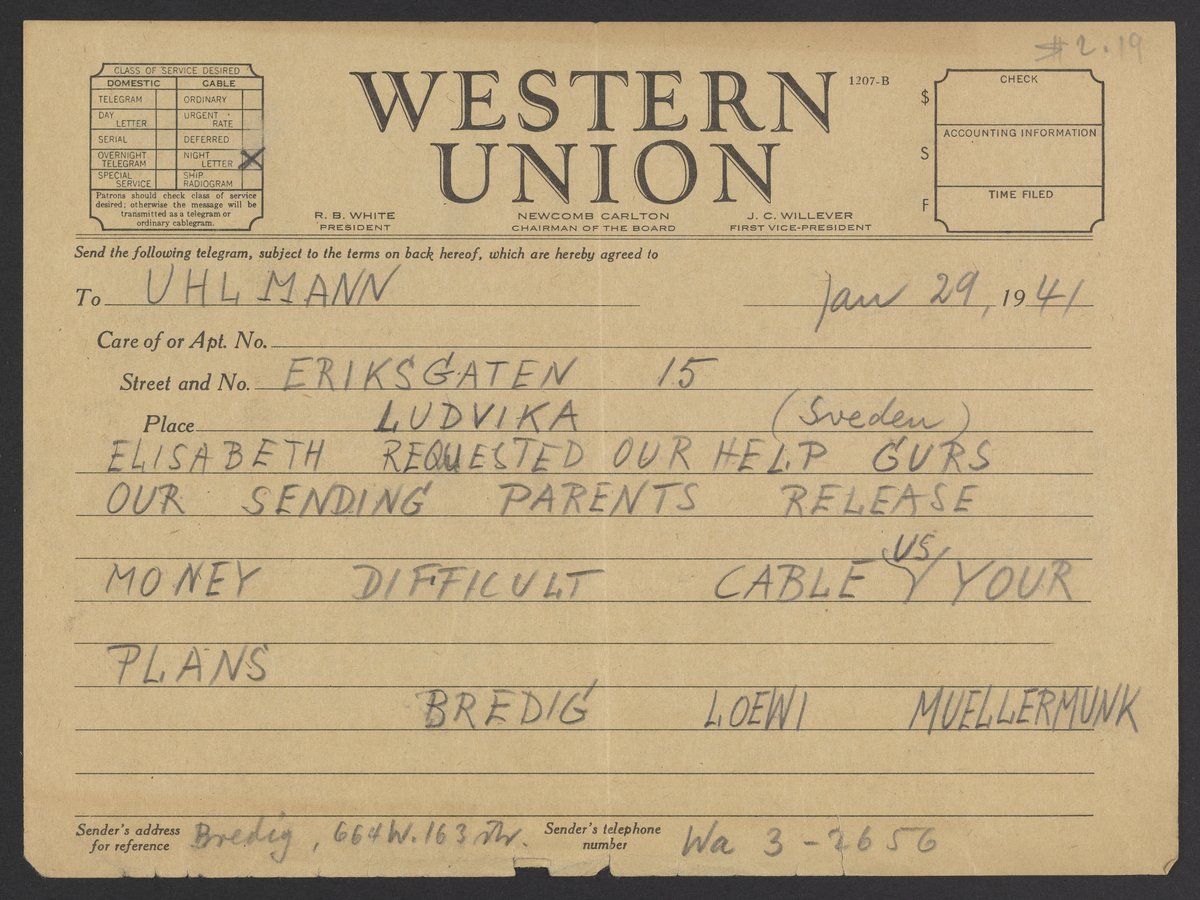 #2.19
CLASS OF SERVICE DESIRED
DOMESTIC CABLE
TELEGRAM ORDINARY
DAY LETTER URGENT RATE
SERIAL DEFERRED
OVERNIGHT TELEGRAM NIGHT LETTER X
SPECIAL SERVICE SHIP RADIOGRAM
Patrons should check class of service
desired; otherwise the message will be
transmitted as a telegram or
ordinary cablegram.
WESTERN
UNION
1207-B
R. B. WHITE
PRESIDENT
NEWCOMB CARLTON
CHAIRMAN OF THE BOARD
J. C. WILLEVER
FIRST VICE-PRESIDENT
$ CHECK
S ACCOUNTING INFORMATION
F TIME FILED
Send the following telegram, subject to the terms on back hereof, which are hereby agreed to
To UHLMANN Jan 29, 1941
Care of or Apt. No.
Street and No. ERIKSGATEN 15
Place LUDVIKA (Sveden)
ELISABETH REQUESTED OUR HELP GURS
OUR SENDING PARENTS RELEASE
MONEY DIFFICULT CABLE US YOUR
PLANS
BREDIG LOEWI MUELLERMUNK
Sender's address for reference Bredig, 664 W. 163 Str. Sender's telephone number Wa 3-2656